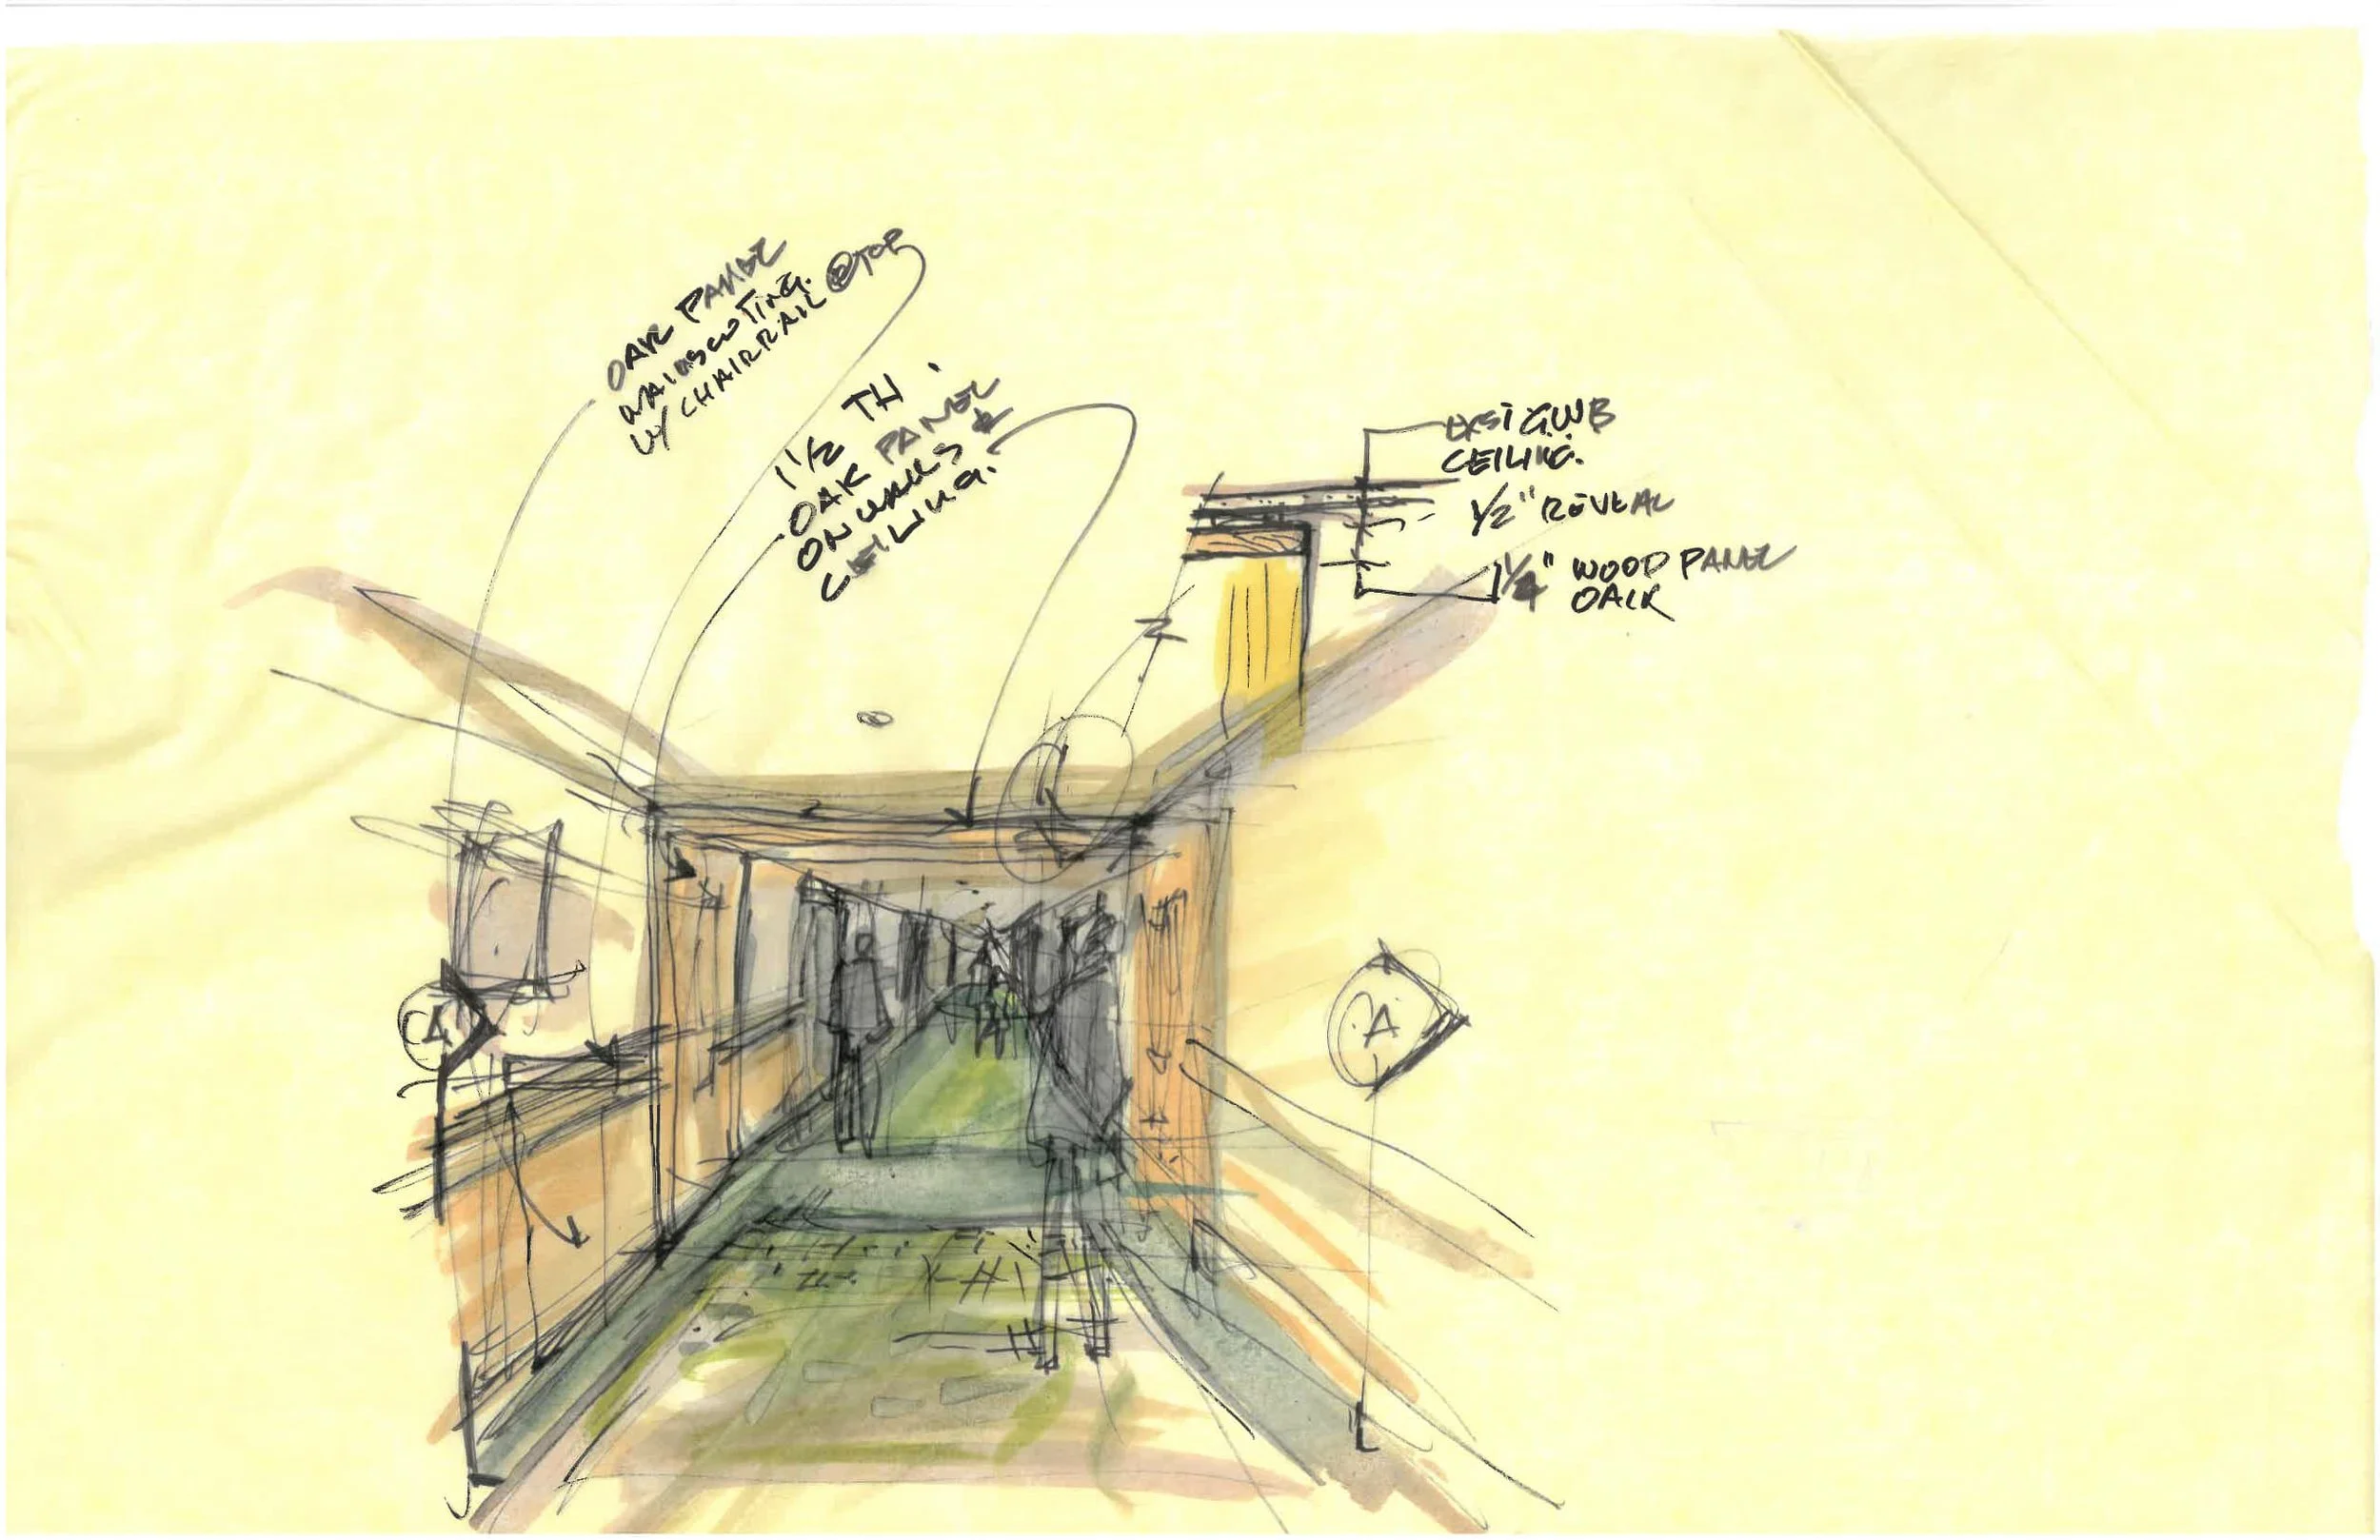 OAK PANEL
WAINSCOTING.
W/ CHAIRRAIL @TOP
1 1/2 TH.
OAK PANEL
ON WALLS &
CEILING.
EXSI GWB
CEILING.
1/2" REVEAL
1/4" WOOD PANEL
OAK
A
A